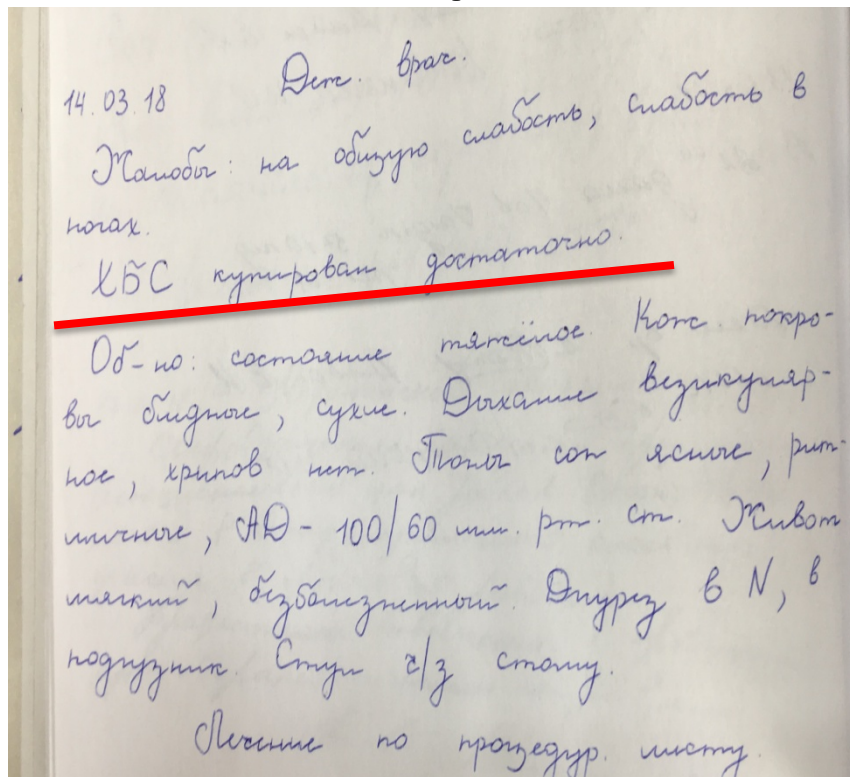 Деж. врач.
14.03.18
Жалобы: на общую слабость, слабость в
ногах.
ХБС купирован достаточно.
Об-но: состояние тяжёлое. Кож. покро-
вы бледные, сухие. Дыхание везикуляр-
ное, хрипов нет. Тоны сон ясные, рит-
мичные, АД - 100/60 мм. рт. ст. Живот
мягкий, безболезненный. Диурез в N, в
подгузник. Стул ч/з стому.
Лечение по процедур. листу.